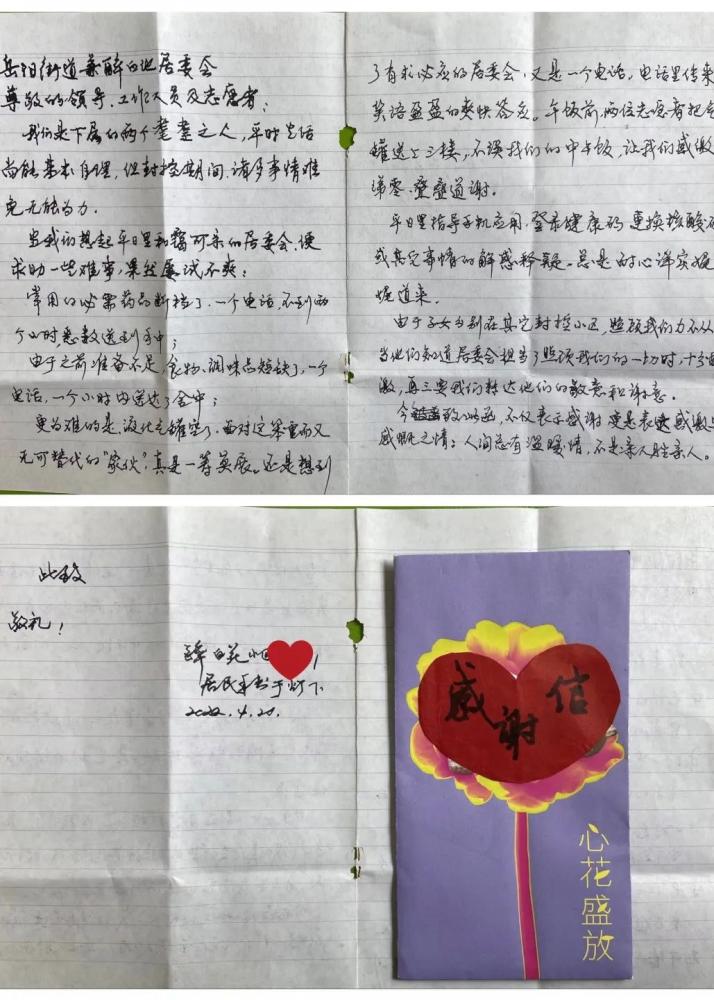 岳阳街道兼醉白池居委会
尊敬的领导、工作人员及志愿者：
我们是下属的两个耄耋之人，平时生活
尚能基本自理，但封控期间，诸多事情难
免无能为力.
当我们想起平日里和蔼可亲的居委会，便
求助一些难事，果然屡试不爽：
常用的必需药品断档了，一个电话，不到两
个小时，悉数送到手中；
由于之前准备不足，食物、调味品短缺了，一个
电话，一个小时内送达了舍中；
更为难的是，液化气罐空了，面对这笨重而又
无可替代的“家伙”，真是一筹莫展。还是想到
了有求必应的居委会，又是一个电话，电话里传来
笑语盈盈的爽快答应。午饭前，两位志愿者把
罐送上三楼，不误我们的中午饭，让我们感激
涕零，叠叠道谢。
平日里指导手机应用，登录健康码，更换核酸码
或其它事情的解惑释疑。总是耐心详实，娓
娓道来.
由于子女分别在其它封控小区，照顾我们力不从
当他们知道居委会担当了照顾我们的一切时，十分
激，再三要我们转达他们的敬意和谢意.
今致小函，不仅表示感谢，更是表达感激
感慨之情：人间总有温暖情，不是亲人胜亲人。
此致
敬礼！
醉白花小
居民草书于灯下
2022.4.20.
感谢信
心花盛放